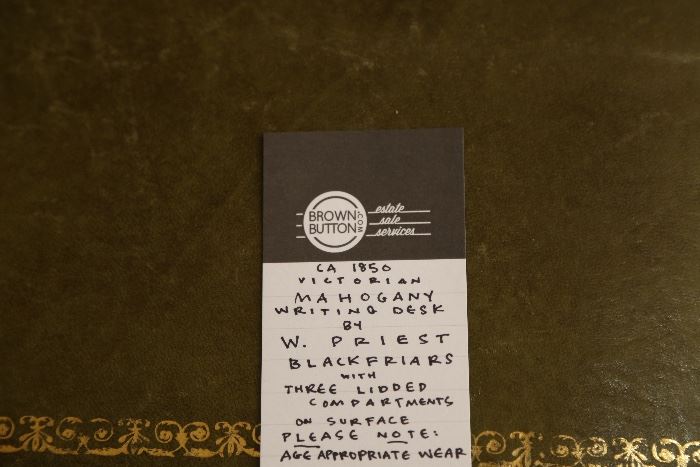 BROWN
BUTTON
.COM
estate
sale
services
CA 1850
VICTORIAN
MAHOGANY
WRITING DESK
BY
W. PRIEST
BLACKFRIARS
WITH
THREE LIDDED
COMPARTMENTS
ON SURFACE
PLEASE NOTE:
AGE APPROPRIATE WEAR